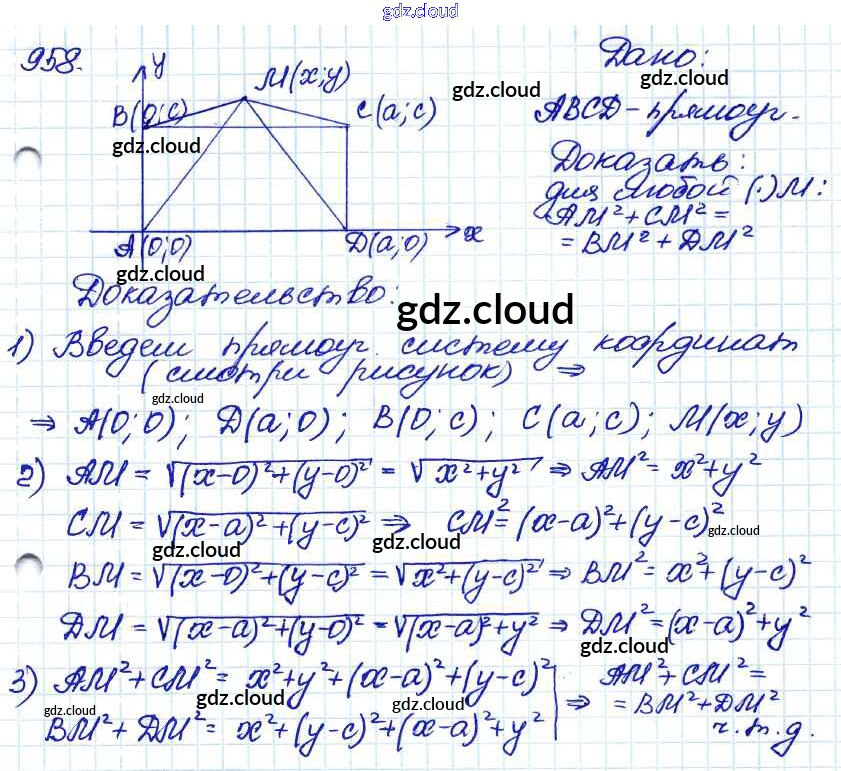 gdz.cloud
958.
y
M(x;y)
B(0;c)
C(a;c)
gdz.cloud
A(0;0)
D(a;0)
x
gdz.cloud
Дано:
gdz.cloud
ABCD - прямоуг.
Доказать:
для любой (·) M:
AM² + CM² =
= BM² + DM²
gdz.cloud
Доказательство:
gdz.cloud
1) Введем прямоуг. систему координат
(смотри рисунок) ⇒
gdz.cloud
⇒ A(0;0); D(a;0); B(0;c); C(a;c); M(x;y)
2) AM = √(x-0)²+(y-0)² = √x²+y² ⇒ AM² = x²+y²
CM = √(x-a)²+(y-c)² ⇒ CM² = (x-a)²+(y-c)²
gdz.cloud
gdz.cloud
gdz.cloud
BM = √(x-0)²+(y-c)² = √x²+(y-c)² ⇒ BM² = x²+(y-c)²
DM = √(x-a)²+(y-0)² = √(x-a)²+y² ⇒ DM² = (x-a)²+y²
gdz.cloud
gdz.cloud
gdz.cloud
3) AM²+CM² = x²+y²+(x-a)²+(y-c)²
BM²+DM² = x²+(y-c)²+(x-a)²+y²
⇒ AM²+CM² =
= BM²+DM²
ч.т.д.
gdz.cloud
gdz.cloud
gdz.cloud
gdz.cloud